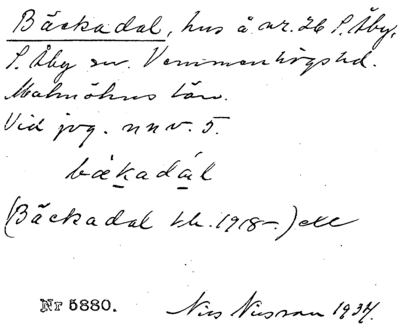 Bäckadal, hus å nr. 26 S. Åby,
S. Åby sn. Vemmenhögs hd.
Malmöhus län.
Vid jvg. nnv. 5.
bækadál
(Bäckadal kb. 1918–.)
Nr 5880.
Nils Nilsson 1934.